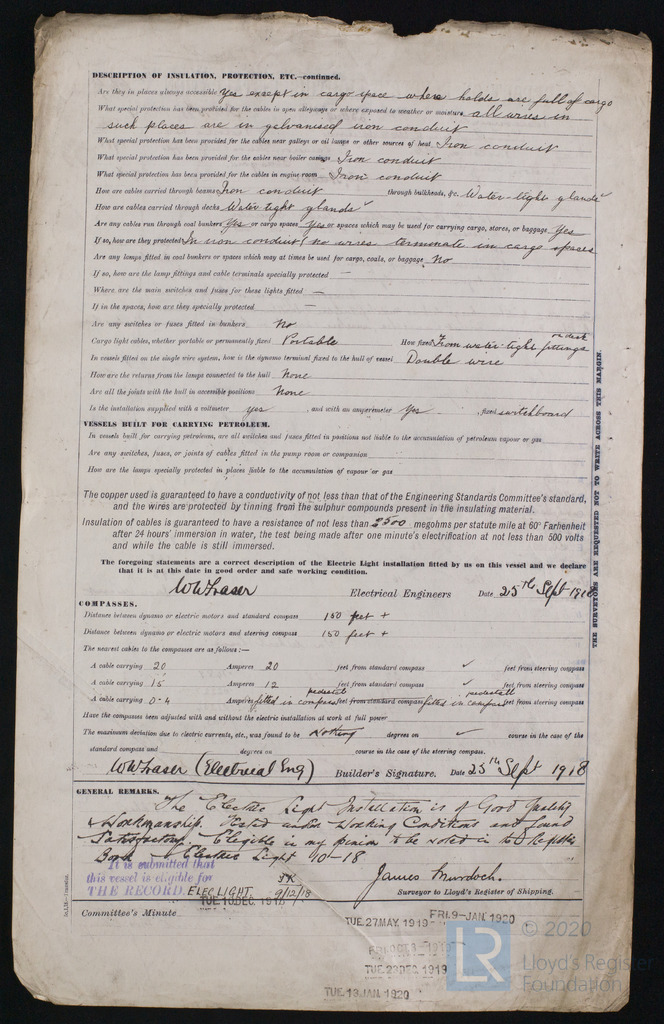 DESCRIPTION OF INSULATION, PROTECTION, ETC.—continued.
Are they in places always accessible Yes except in cargo space where holds are full of cargo
What special protection has been provided for the cables in open alleyways or where exposed to weather or moisture all wires in
such places are in galvanised iron conduit
What special protection has been provided for the cables near galleys or oil lamps or other sources of heat Iron conduit
What special protection has been provided for the cables near boiler casings Iron conduit
What special protection has been provided for the cables in engine room Iron conduit
How are cables carried through beams Iron conduit through bulkheads, &c. Water-tight glands
How are cables carried through decks Water tight glands
Are any cables run through coal bunkers Yes or cargo spaces Yes or spaces which may be used for carrying cargo, stores, or baggage Yes
If so, how are they protected In iron conduit (no wires terminate in cargo spaces
Are any lamps fitted in coal bunkers or spaces which may at times be used for cargo, coals, or baggage No
If so, how are the lamp fittings and cable terminals specially protected —
Where are the main switches and fuses for these lights fitted —
If in the spaces, how are they specially protected —
Are any switches or fuses fitted in bunkers No
Cargo light cables, whether portable or permanently fixed Portable How fixed From water-tight fittings on deck
In vessels fitted on the single wire system, how is the dynamo terminal fixed to the hull of vessel Double wire
How are the returns from the lamps connected to the hull None
Are all the joints with the hull in accessible positions None
Is the installation supplied with a voltmeter yes , and with an amperemeter yes , fixed switchboard
VESSELS BUILT FOR CARRYING PETROLEUM.
In vessels built for carrying petroleum, are all switches and fuses fitted in positions not liable to the accumulation of petroleum vapour or gas
Are any switches, fuses, or joints of cables fitted in the pump room or companion
How are the lamps specially protected in places liable to the accumulation of vapour or gas
The copper used is guaranteed to have a conductivity of not less than that of the Engineering Standards Committee's standard,
and the wires are protected by tinning from the sulphur compounds present in the insulating material.
Insulation of cables is guaranteed to have a resistance of not less than 2500 megohms per statute mile at 60° Farhenheit
after 24 hours' immersion in water, the test being made after one minute's electrification at not less than 500 volts
and while the cable is still immersed.
The foregoing statements are a correct description of the Electric Light installation fitted by us on this vessel and we declare
that it is at this date in good order and safe working condition.
WW Fraser Electrical Engineers Date 25th Sept 1918
COMPASSES.
Distance between dynamo or electric motors and standard compass 150 feet +
Distance between dynamo or electric motors and steering compass 150 feet +
The nearest cables to the compasses are as follows:—
A cable carrying 20 Amperes 20 feet from standard compass ✓ feet from steering compass
A cable carrying 15 Amperes 12 feet from standard compass ✓ feet from steering compass
A cable carrying 0-4 Amperes fitted in compass pedestals feet from standard compass fitted in compass pedestals feet from steering compass
Have the compasses been adjusted with and without the electric installation at work at full power
The maximum deviation due to electric currents, etc., was found to be Nothing degrees on ✓ course in the case of the
standard compass and degrees on course in the case of the steering compass.
WW Fraser (Electrical Eng) Builder's Signature. Date 25th Sept 1918
GENERAL REMARKS.
The Electric Light Installation is of Good Quality
& Workmanship. Tested under Working Conditions and found
Satisfactory. Eligible in my opinion to be noted in the Register
Book Electric Light 10-18
It is submitted that
this vessel is eligible for
THE RECORD. ELEC LIGHT. 9/12/18
James Murdoch.
Surveyor to Lloyd's Register of Shipping.
TUE. 10 DEC. 1918
Committee's Minute
TUE. 27 MAY. 1919
FRI. 9-JAN 1920
TUE. 23 DEC. 1919
TUE. 13 JAN. 1920
THE SURVEYORS ARE REQUESTED NOT TO WRITE ACROSS THIS MARGIN.
LR
© 2020
Lloyd's Register
Foundation